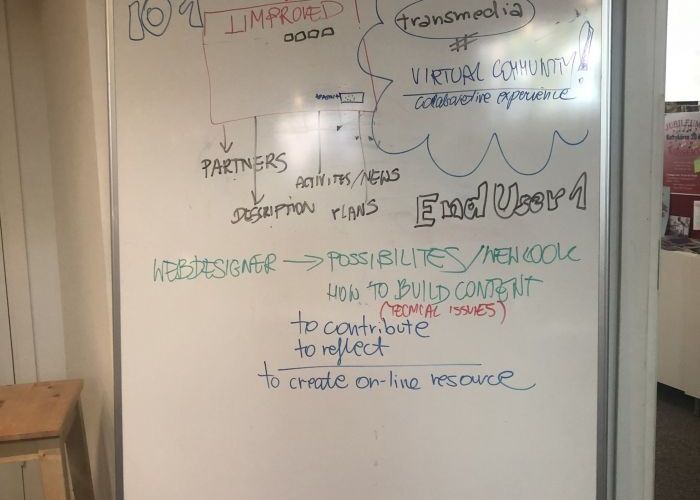 101
IMPROVED
transmedia
#
VIRTUAL COMMUNITY!
collaborative experience
PARTNERS
ACTIVITES/NEWS
DESCRIPTION PLANS
End User 1
WEBDESIGNER → POSSIBILITES/NEW LOOK
HOW TO BUILD CONTENT
(TECNICAL ISSUES)
to contribute
to reflect
to create on-line resource
JUBILEUM